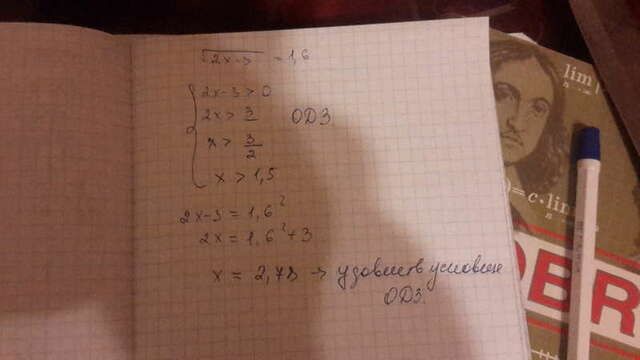 √2x-3 = 1,6
2x-3 > 0
2x > 3
x > 3/2
x > 1,5
ОДЗ
2x-3 = 1,6²
2x = 1,6²+3
x = 2,78 → удовлетв условию
ОДЗ.
lim
= c·lim
n
BR